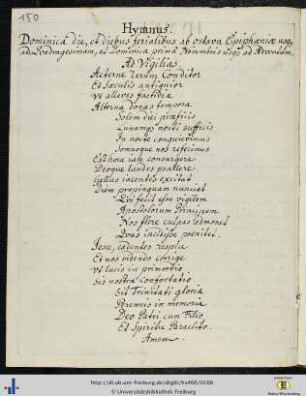 150
Hymnus.
Dominica die, et diebus ferialibus ab octava Epiphaniæ usq,
ad Quadragesimam, et Dominica prima Novembris usq; ad Adventum.
Ad Vigilias.
Aeterne rerum Conditor
Et sæculis antiquior
Vt alleves fastidia
Alterna donas tempora
Solem diei præficis
Lunamq; nocti sufficis
In nocte conquievimus
Somnoque nos refecimus
consurgere
Deoque laudes psallere
Gallus iacentes excitat
Diem propinquam nunciat
Qui fecit esse vigilem
Apostolorum Principem
Nos flere culpas admonet
Quas incidisse poenitet.
Iesu, cadentes respice
Et nos videndo corrige
Vt lucis in primordio
Sis nostra confortatio
Sit Trinitati gloria
Perennis in memoria
Deo Patri cum Filio
Et Spiritu Paraclito.
Amen.
http://dl.ub.uni-freiburg.de/diglit/hs466/0168
© Universitätsbibliothek Freiburg